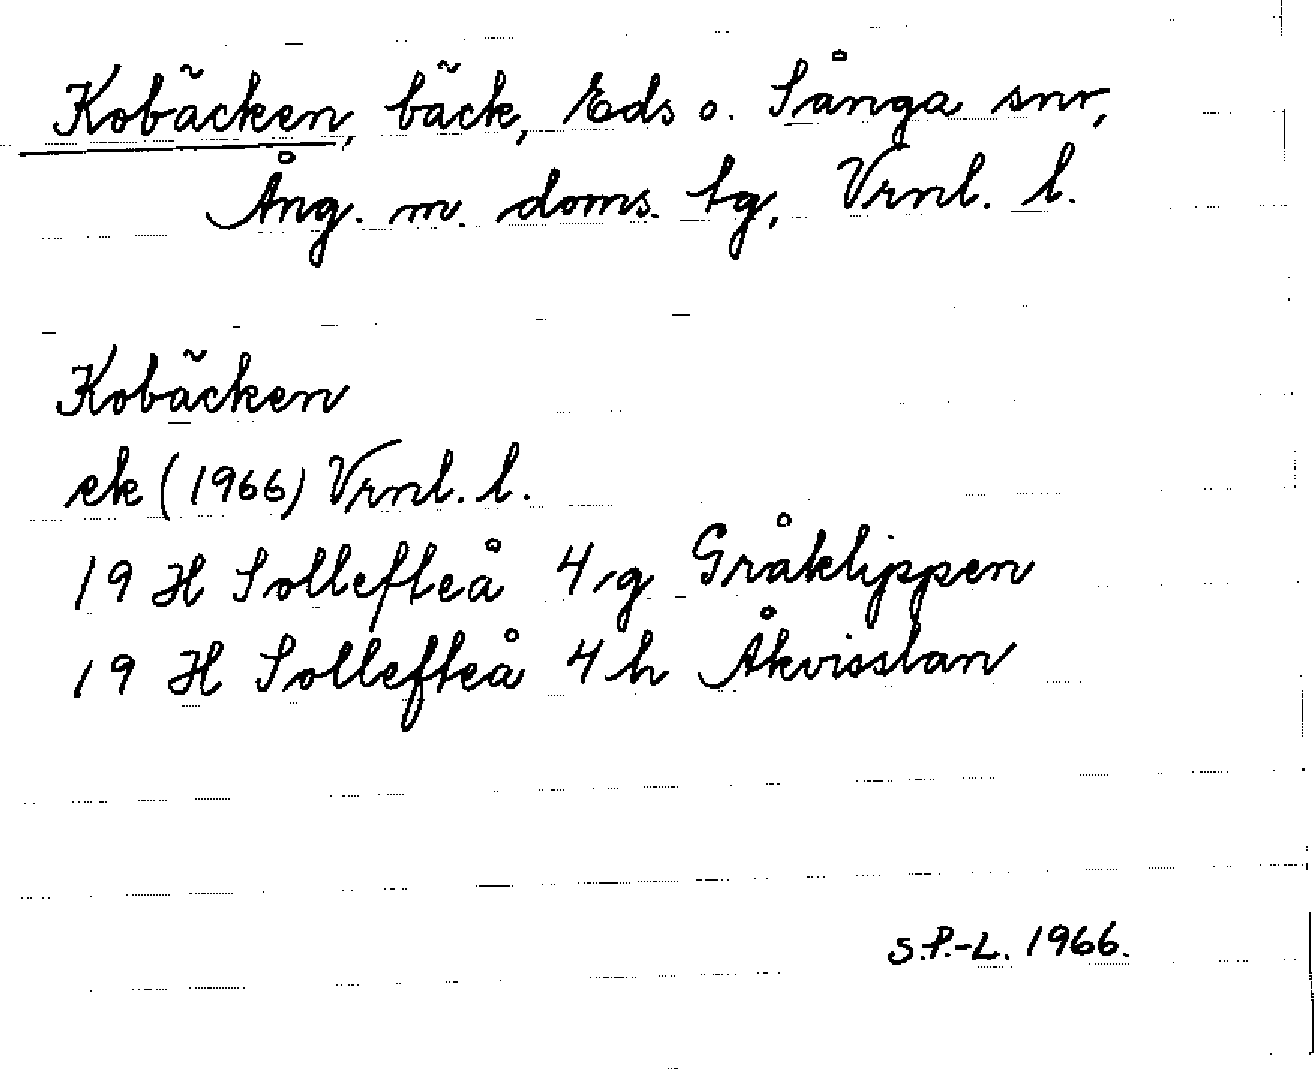 Kobäcken, bäck, Eds o. Sånga snr,
Ång. m. doms. tg, Vrnl. l.
Kobäcken
ek (1966) Vrnl. l.
19 H Sollefteå 4 g Gråklippen
19 H Sollefteå 4 h Åkvisslan
S.P.-L. 1966.